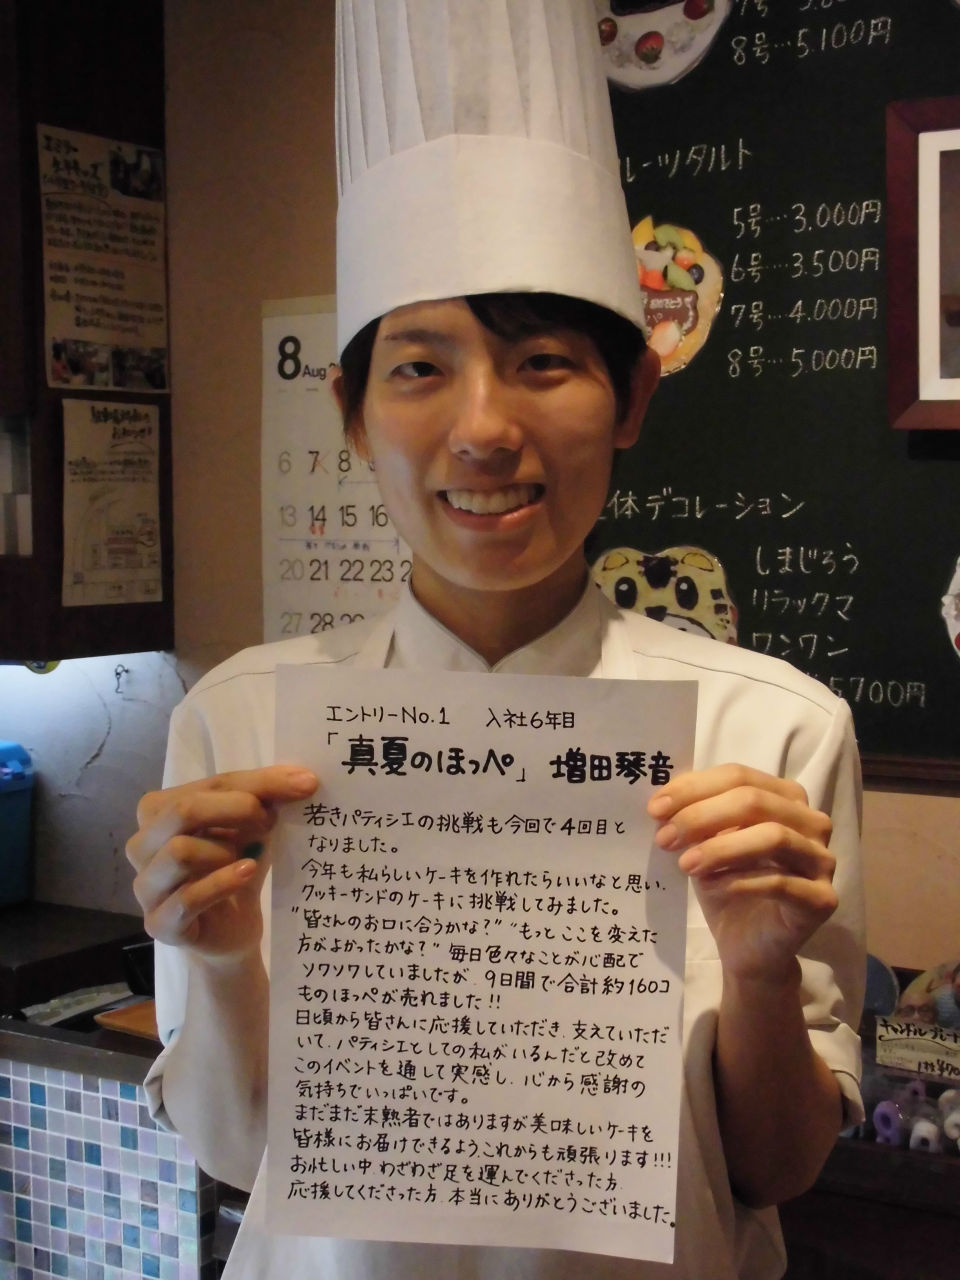 8号…5.100円
ルーツタルト
5号…3.000円
6号…3.500円
7号…4.000円
8号…5.000円
体デコレーション
しまじろう
リラックマ
ワンワン
5700円
8 Aug
6 7 8
13 14 15 16
20 21 22 23 2
27 28
エミリー
エントリーNo.1 入社6年目
「真夏のほっぺ」 増田琴音
若きパティシエの挑戦も今回で4回目と
なりました。
今年も私らしいケーキを作れたらいいなと思い、
クッキーサンドのケーキに挑戦してみました。
"皆さんのお口に合うかな?" "もっとここを変えた
方がよかったかな?" 毎日色々なことが心配で
ソワソワしていましたが、9日間で合計約160コ
ものほっぺが売れました!!
日頃から皆さんに応援していただき、支えていただ
いて、パティシエとしての私がいるんだと改めて
このイベントを通して実感し、心から感謝の
気持ちでいっぱいです。
まだまだ未熟者ではありますが美味しいケーキを
皆様にお届けできるよう、これからも頑張ります!!!
お忙しい中、わざわざ足を運んでくださった方、
応援してくださった方、本当にありがとうございました。
キャンドルプレート